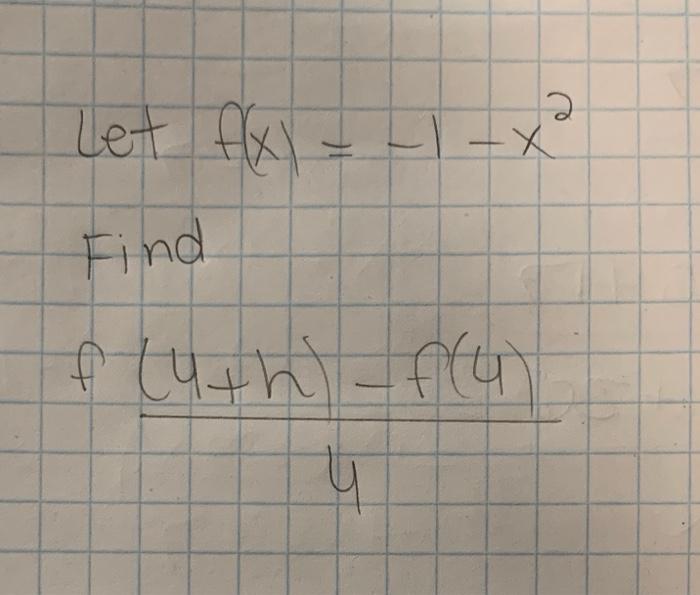 Let f(x) = -1 - x²
Find
f (4+h) - f(4)
4